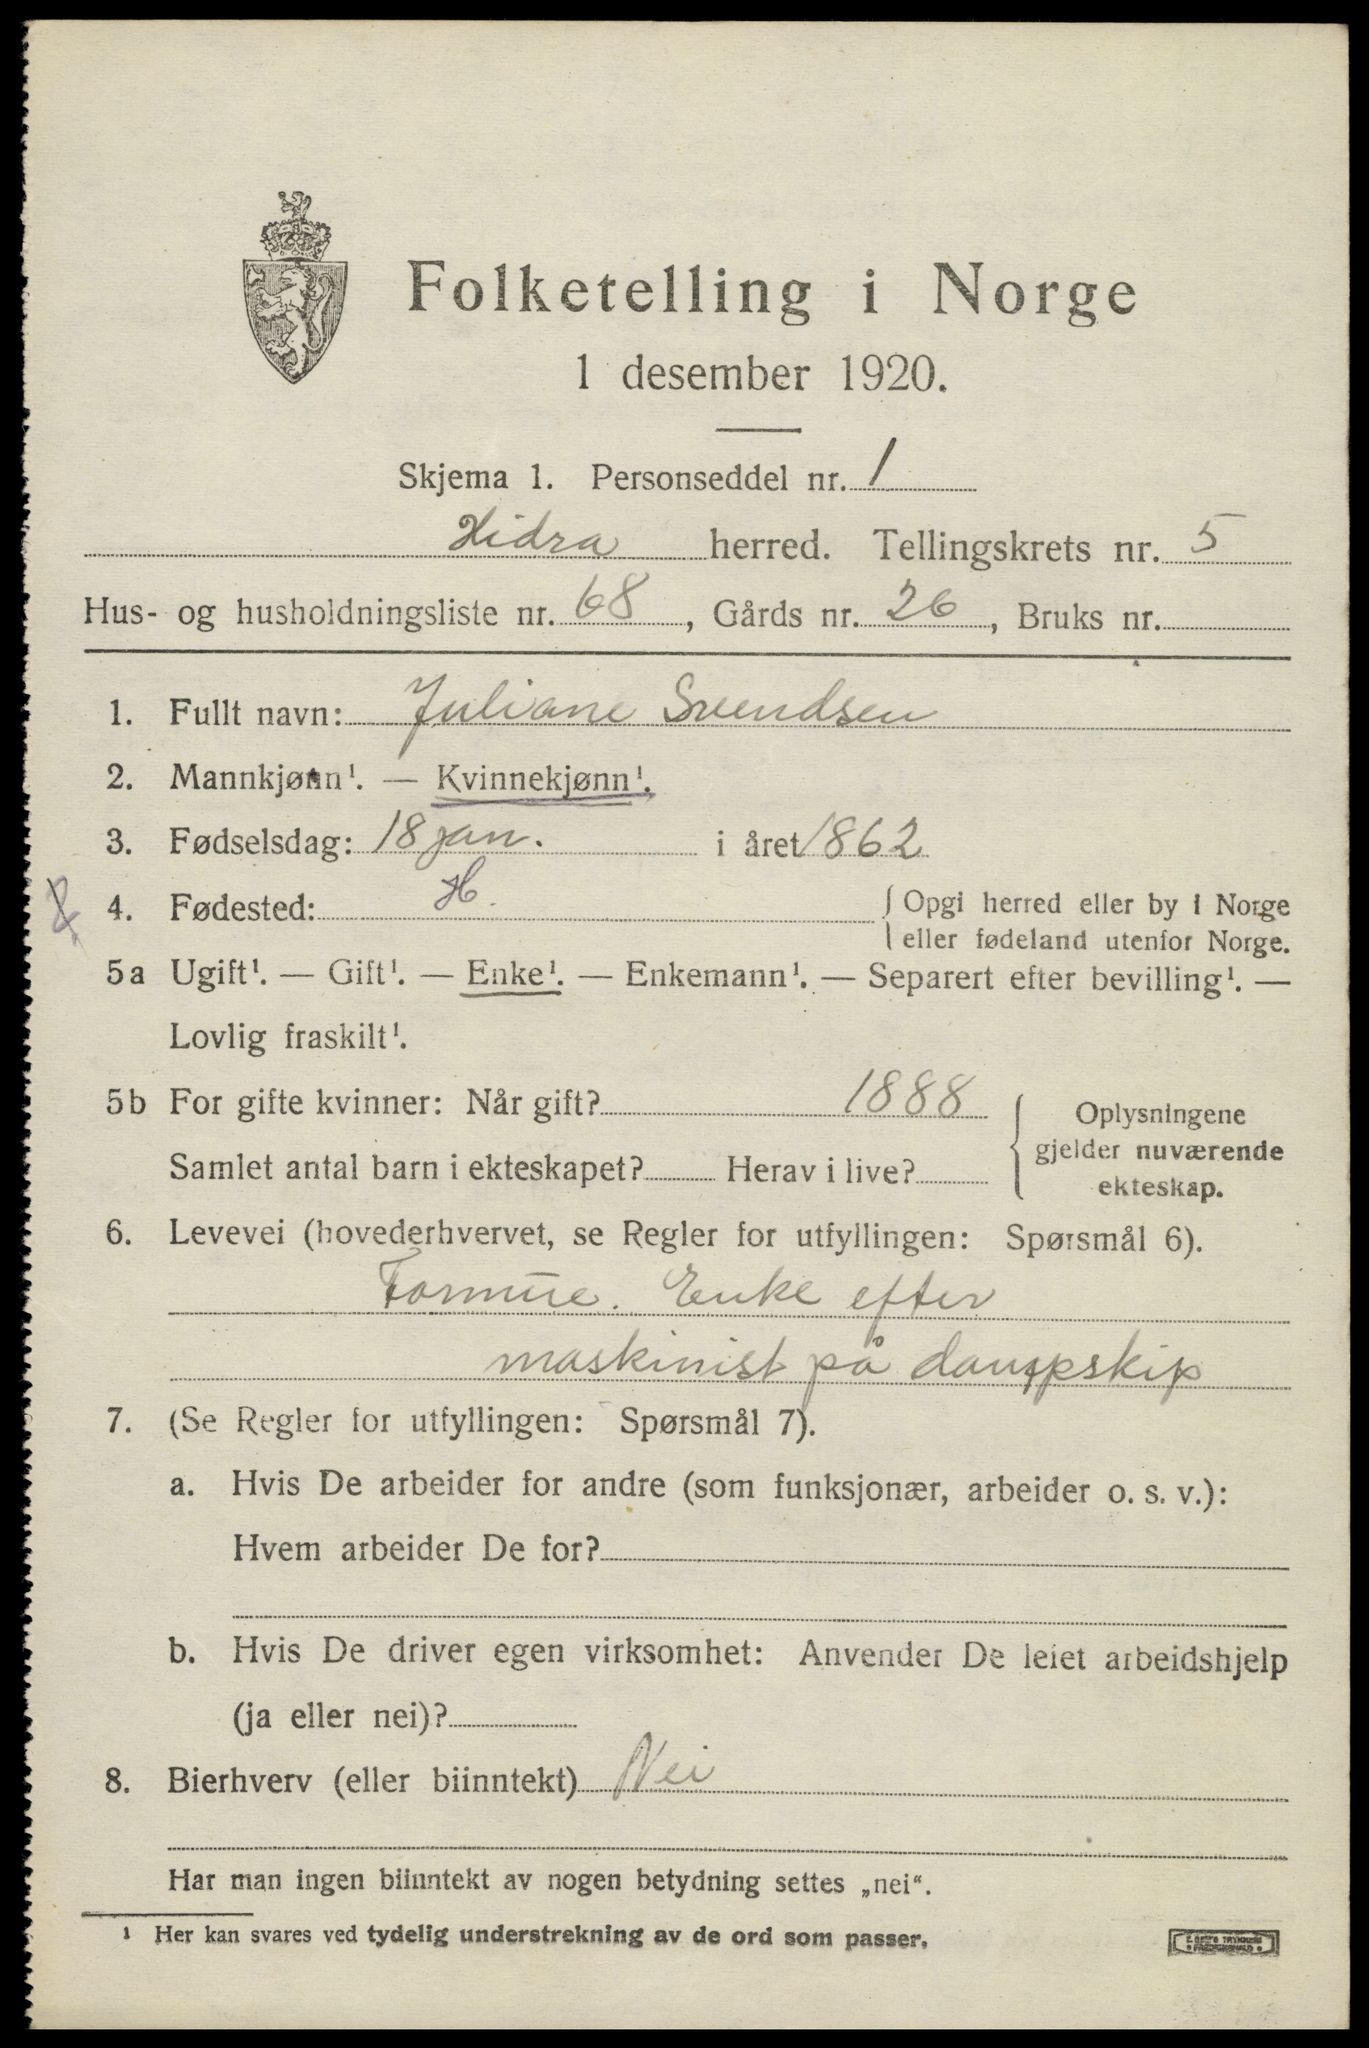 Folketelling i Norge
1 desember 1920.
Skjema 1. Personseddel nr. 1
Hidra herred. Tellingskrets nr. 5
Hus- og husholdningsliste nr. 68, Gårds nr. 26, Bruks nr.
1. Fullt navn: Juliane Svendsen
2. Mannkjønn¹. — Kvinnekjønn¹.
3. Fødselsdag: 18 jan. i året 1862
4. Fødested: H. { Opgi herred eller by i Norge
eller fødeland utenfor Norge.
5a Ugift¹. — Gift¹. — Enke¹. — Enkemann¹. — Separert efter bevilling¹. —
Lovlig fraskilt¹.
5b For gifte kvinner: Når gift? 1888 { Oplysningene
gjelder nuværende
ekteskap.
Samlet antal barn i ekteskapet? Herav i live?
6. Levevei (hovederhvervet, se Regler for utfyllingen: Spørsmål 6).
Formue. Enke efter
maskinist på dampskip
7. (Se Regler for utfyllingen: Spørsmål 7).
a. Hvis De arbeider for andre (som funksjonær, arbeider o. s. v.):
Hvem arbeider De for?
b. Hvis De driver egen virksomhet: Anvender De leiet arbeidshjelp
(ja eller nei)?
8. Bierhverv (eller biinntekt) Nei
Har man ingen biinntekt av nogen betydning settes „nei“.
¹ Her kan svares ved tydelig understrekning av de ord som passer.